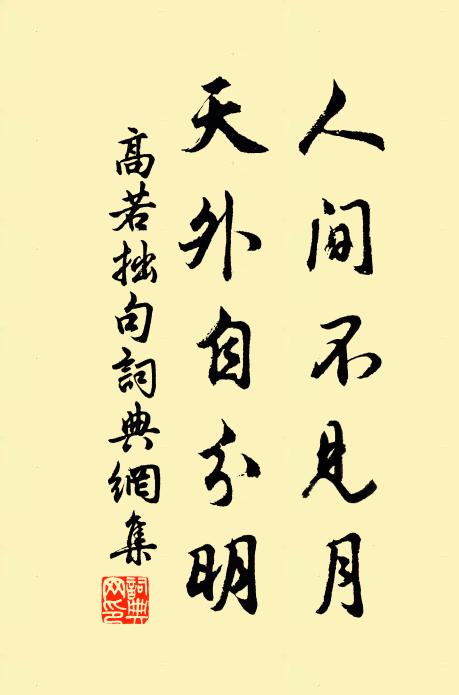 人間不見月
天外自分明
高若拙句詞典網集
詞典網印